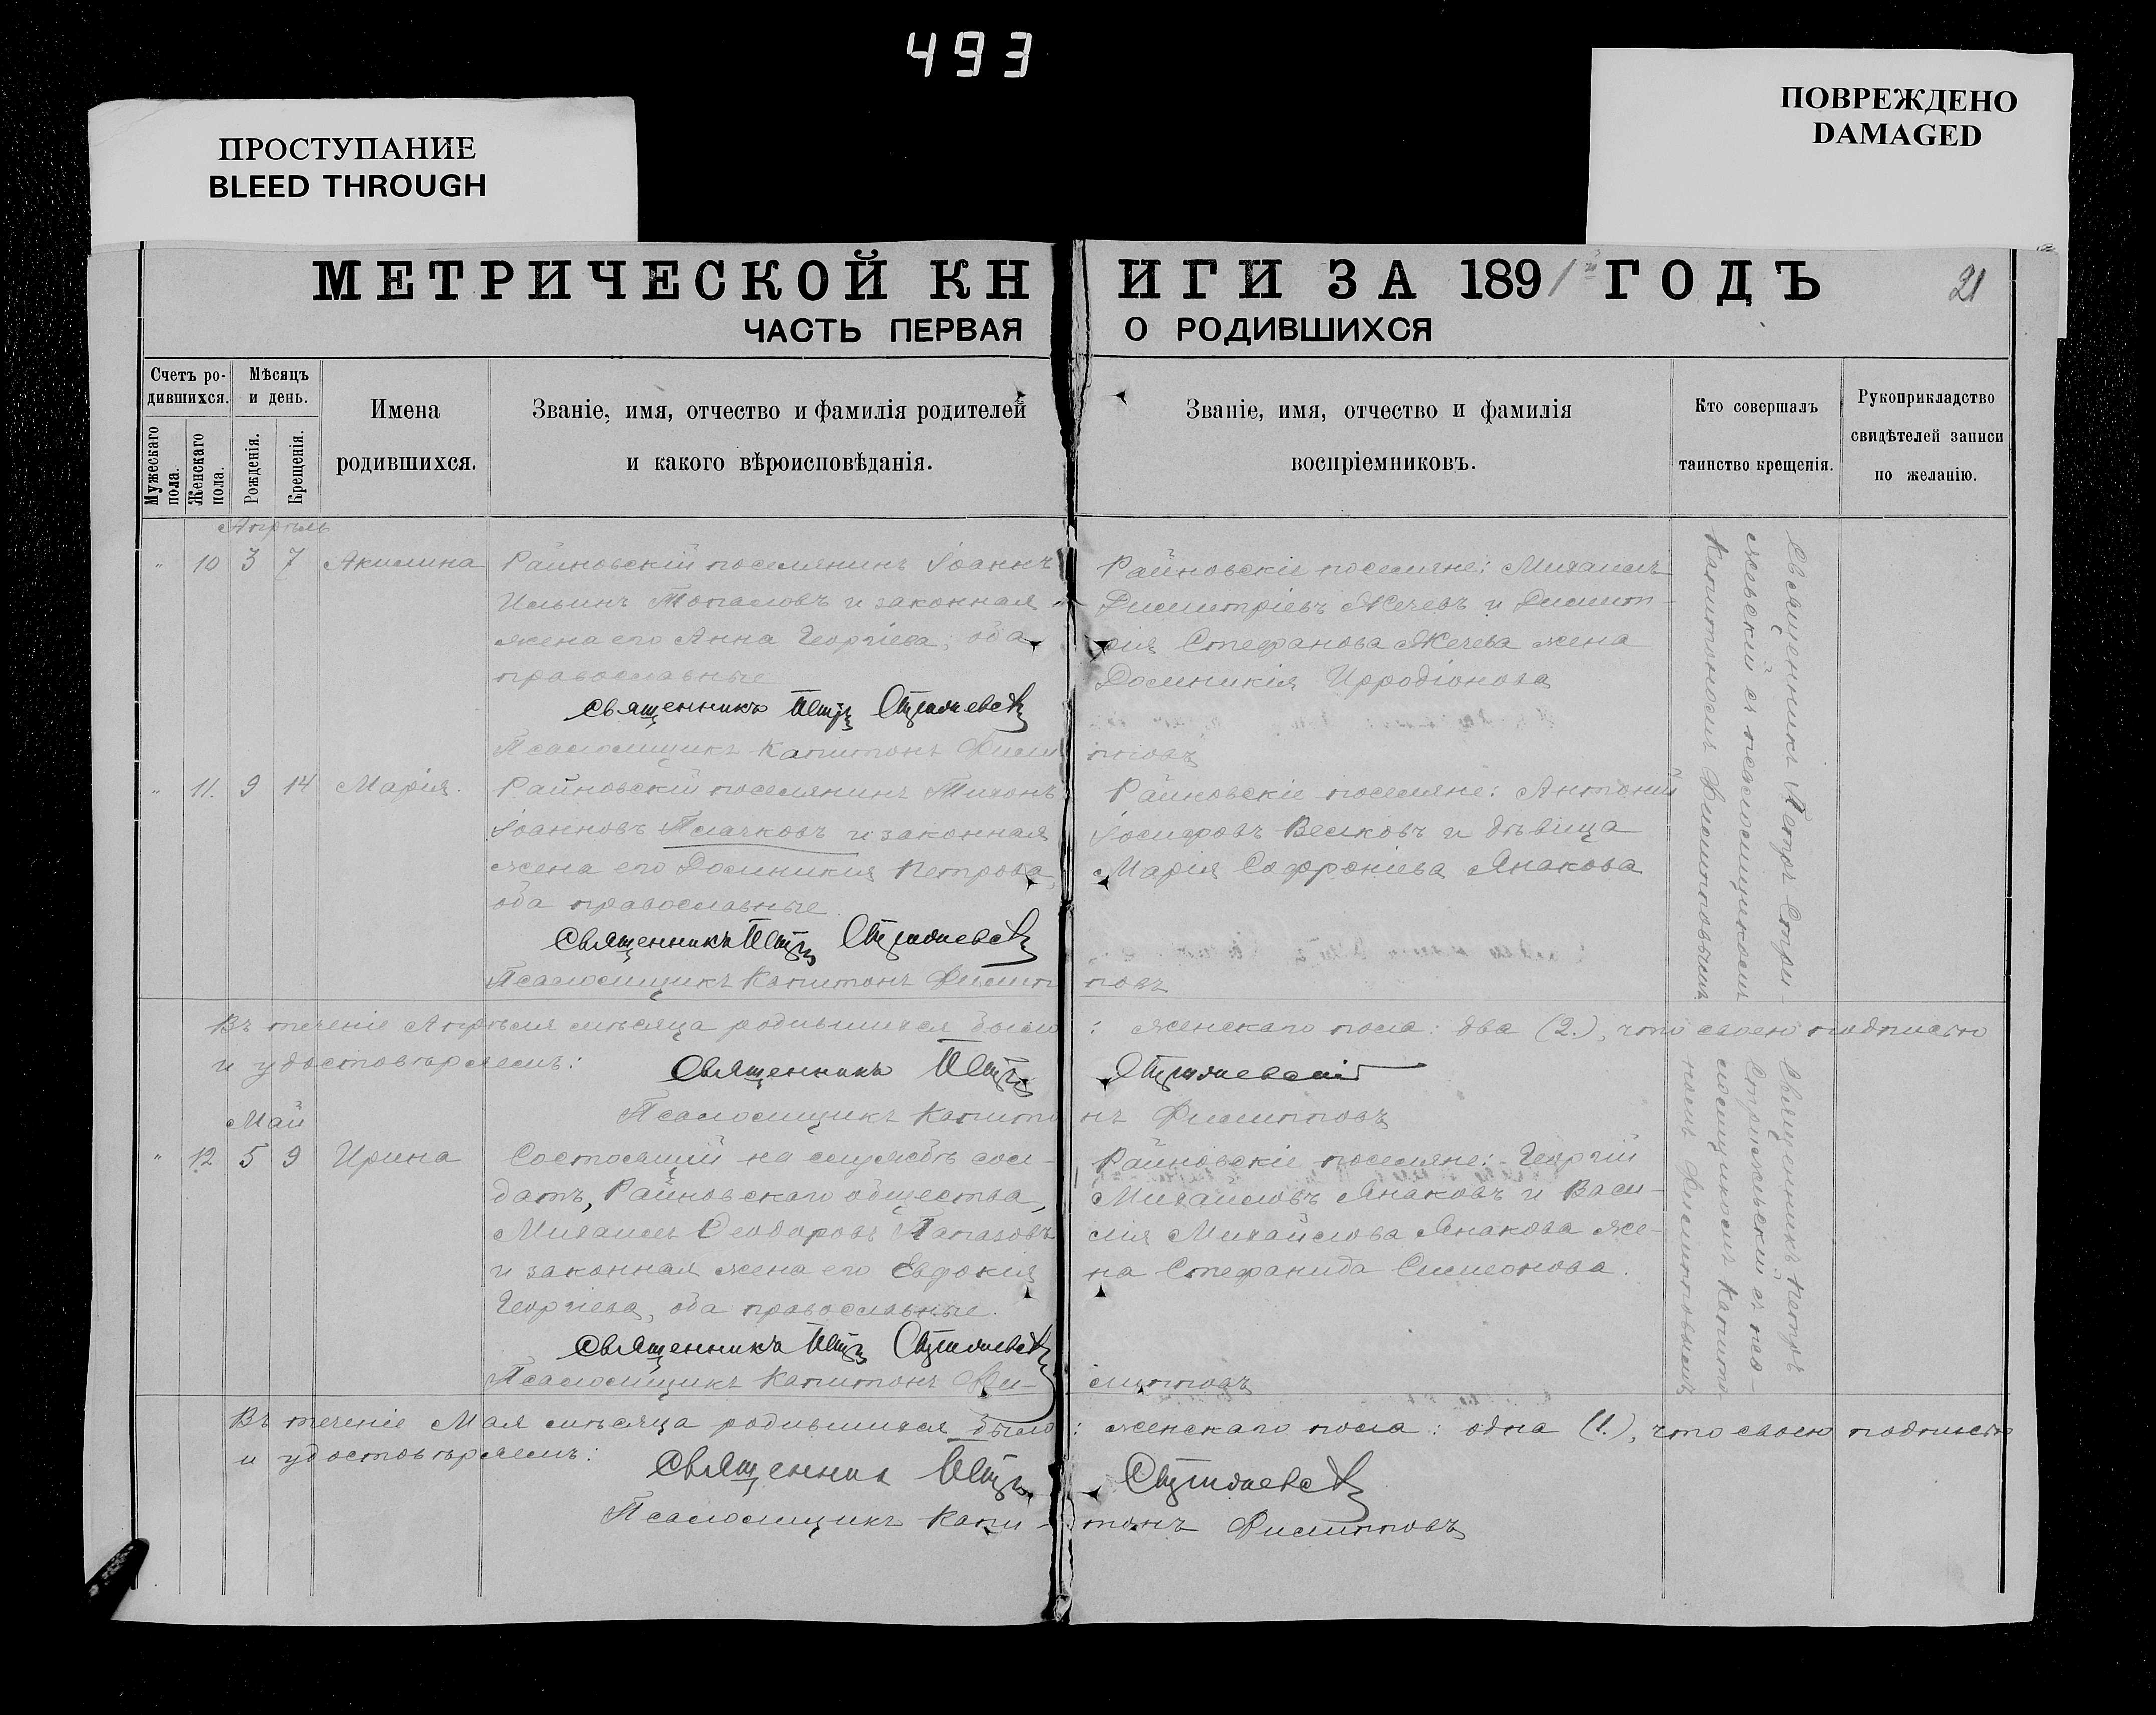 493
ПРОСТУПАНИЕ
BLEED THROUGH
ПОВРЕЖДЕНО
DAMAGED
МЕТРИЧЕСКОЙ КНИГИ ЗА 1891 ГОДЪ
21
ЧАСТЬ ПЕРВАЯ О РОДИВШИХСЯ
Счетъ ро-
дившихся.
Мужескаго
пола.
Женскаго
пола.
Мѣсяцъ
и день.
Рожденія.
Крещенія.
Имена
родившихся.
Званіе, имя, отчество и фамилія родителей
и какого вѣроисповѣданія.
Званіе, имя, отчество и фамилія
воспріемниковъ.
Кто совершалъ
таинство крещенія.
Рукоприкладство
свидѣтелей записи
по желанію.
Апрѣль
" 10 3 7 Акилина
Райновскій поселянинъ Іоаннъ
Ильинъ Топаловъ и законная
жена его Анна Георгіева, оба
православные
Священникъ Петръ
Псаломщикъ Капитонъ Филипповъ
Райновскіе поселяне: Михаилъ
Димитріевъ Жечевъ и Димит-
рія Стефанова Жечева жена
Доминикія Иродіонова
Священникъ Петръ Стри-
жевскій съ псаломщикомъ
Капитономъ Филипповымъ
" 11. 9 14 Марія.
Райновскій поселянинъ Тихонъ
Іоанновъ Плачковъ и законная
жена его Доминикія Петрова,
оба православные
Священникъ Петръ
Псаломщикъ Капитонъ Филипповъ
Райновскіе поселяне: Антоній
Іосифовъ Велковъ и дѣвица
Марія Софроніева Янакова
Въ теченіе Апрѣля мѣсяца родившихся было: женскаго пола: два (2.), что своею подписью
и удостовѣряемъ:
Священникъ Петръ
Псаломщикъ Капитонъ Филипповъ
Май
" 12 5 9 Ирина
Состоящій на службѣ сол-
датъ, Райновскаго общества,
Михаилъ Ѳеодоровъ Папазовъ
и законная жена его Евдокія
Георгіева, оба православные.
Священникъ Петръ
Псаломщикъ Капитонъ Филипповъ
Райновскіе поселяне: Георгій
Михаиловъ Янаковъ и Васи-
лія Михайлова Янакова же-
на Стефанида Симеонова.
Священникъ Петръ
Стрижевскій съ пса-
ломщикомъ Капито-
номъ Филипповымъ
Въ теченіе Мая мѣсяца родившихся было: женскаго пола: одна (1.), что своею подписью
и удостовѣряемъ:
Священникъ Петръ
Псаломщикъ Капитонъ Филипповъ